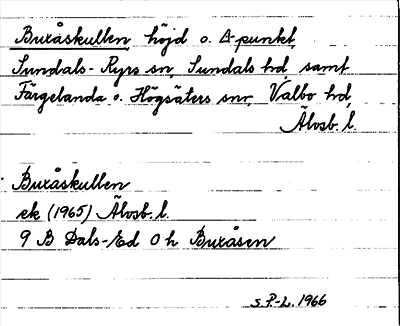 Buxåskullen, höjd o. Δ-punkt,
Sundals-Ryrs sn, Sundals hd, samt
Färgelanda o. Högsäters snr, Valbo hd,
Älvsb. l.
Buxåskullen
ek (1965) Älvsb. l.
9 B Dals-Ed 0 h Buxåsen
S.P.-L. 1966